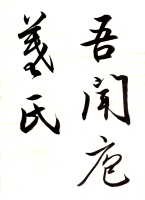 吾聞庖
羲氏